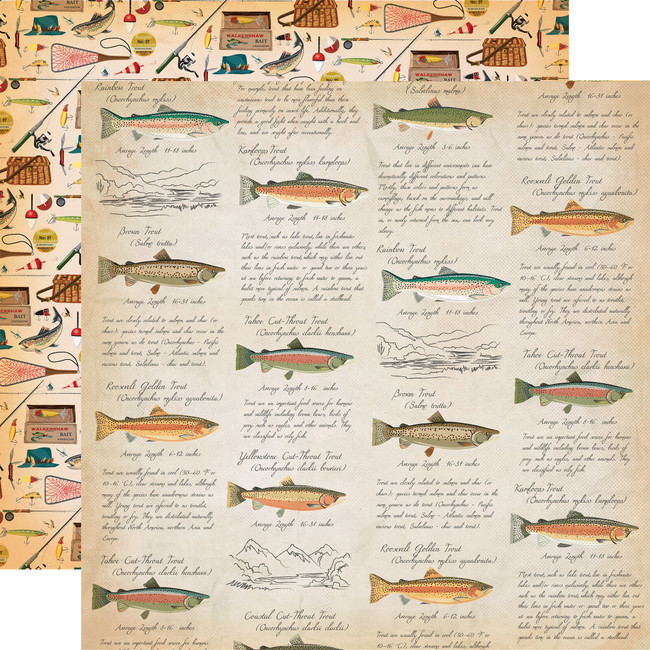 No. 87
WALKERSHAW
BAIT
Rainbow Trout
(Oncorhynchus mykiss)
Average Length 11-18 inches
Brown Trout
(Salmo trutta)
Average Length 16-31 inches
Trout are closely related to salmon and char (or
charr): species termed salmon and char occur in the
same genera as do trout (Oncorhynchus - Pacific
salmon and trout, Salmo - Atlantic salmon and
various trout, Salvelinus - char and trout).
Roosevelt Golden Trout
(Oncorhynchus mykiss aguabonita)
Average Length 6-12 inches
Trout are usually found in cool (50-60 °F or
10-16 °C), clear streams and lakes, although
many of the species have anadromous strains as
well. Young trout are referred to as troutlet,
troutling or fry. They are distributed naturally
throughout North America, northern Asia and
Europe.
Tahoe Cut-Throat Trout
(Oncorhynchus clarkii henshawi)
Average Length 8-16 inches
Trout are an important food source for humans
Karloops Trout
(Oncorhynchus mykiss karploops)
Average Length 11-18 inches
Most trout, such as lake trout, live in freshwater
lakes and/or rivers exclusively, while there are others,
such as the rainbow trout, which may either live out
their lives in fresh water or spend two or three years
at sea before returning to fresh water to spawn, a
habit more typical of salmon. A rainbow trout that
spends time in the ocean is called a steelhead.
Tahoe Cut-Throat Trout
(Oncorhynchus clarkii henshawi)
Average Length 8-16 inches
Trout are an important food source for humans
and wildlife including brown bears, birds of
prey such as eagles, and other animals. They
are classified as oily fish.
Yellowstone Cut-Throat Trout
(Oncorhynchus clarkii bouvieri)
Average Length 16-31 inches
Coastal Cut-Throat Trout
(Oncorhynchus clarkii clarkii)
Average Length 3-6 inches
Trout that live in different environments can have
dramatically different colorations and patterns.
Mostly, these colors and patterns form as
camouflage, based on the surroundings, and will
change as the fish moves to different habitats. Trout
in, or newly returned from the sea, can look very
silvery.
Rainbow Trout
(Oncorhynchus mykiss)
Average Length 11-18 inches
Brown Trout
(Salmo trutta)
Average Length 16-31 inches
Trout are closely related to salmon and char (or
charr): species termed salmon and char occur in the
same genera as do trout (Oncorhynchus - Pacific
salmon and trout, Salmo - Atlantic salmon and
various trout, Salvelinus - char and trout).
Roosevelt Golden Trout
(Oncorhynchus mykiss aguabonita)
Average Length 6-12 inches
Trout are usually found in cool (50-60 °F or
10-16 °C), clear streams and lakes, although
many of the species have anadromous strains as
Average Length 16-31 inches
Trout are closely related to salmon and char (or
charr): species termed salmon and char occur in the
same genera as do trout (Oncorhynchus - Pacific
salmon and trout, Salmo - Atlantic salmon and
various trout, Salvelinus - char and trout).
Roosevelt Golden Trout
(Oncorhynchus mykiss aguabonita)
Average Length 6-12 inches
Trout are usually found in cool (50-60 °F or
10-16 °C), clear streams and lakes, although
many of the species have anadromous strains as
well. Young trout are referred to as troutlet,
troutling or fry. They are distributed naturally
throughout North America, northern Asia and
Europe.
Tahoe Cut-Throat Trout
(Oncorhynchus clarkii henshawi)
Average Length 8-16 inches
Trout are an important food source for humans
and wildlife including brown bears, birds of
prey such as eagles, and other animals. They
are classified as oily fish.
Karloops Trout
(Oncorhynchus mykiss karploops)
Average Length 11-18 inches
Most trout, such as lake trout, live in freshwater
lakes and/or rivers exclusively, while there are others,
such as the rainbow trout, which may either live out
their lives in fresh water or spend two or three years
at sea before returning to fresh water to spawn, a
habit more typical of salmon. A rainbow trout that
spends time in the ocean is called a steelhead.